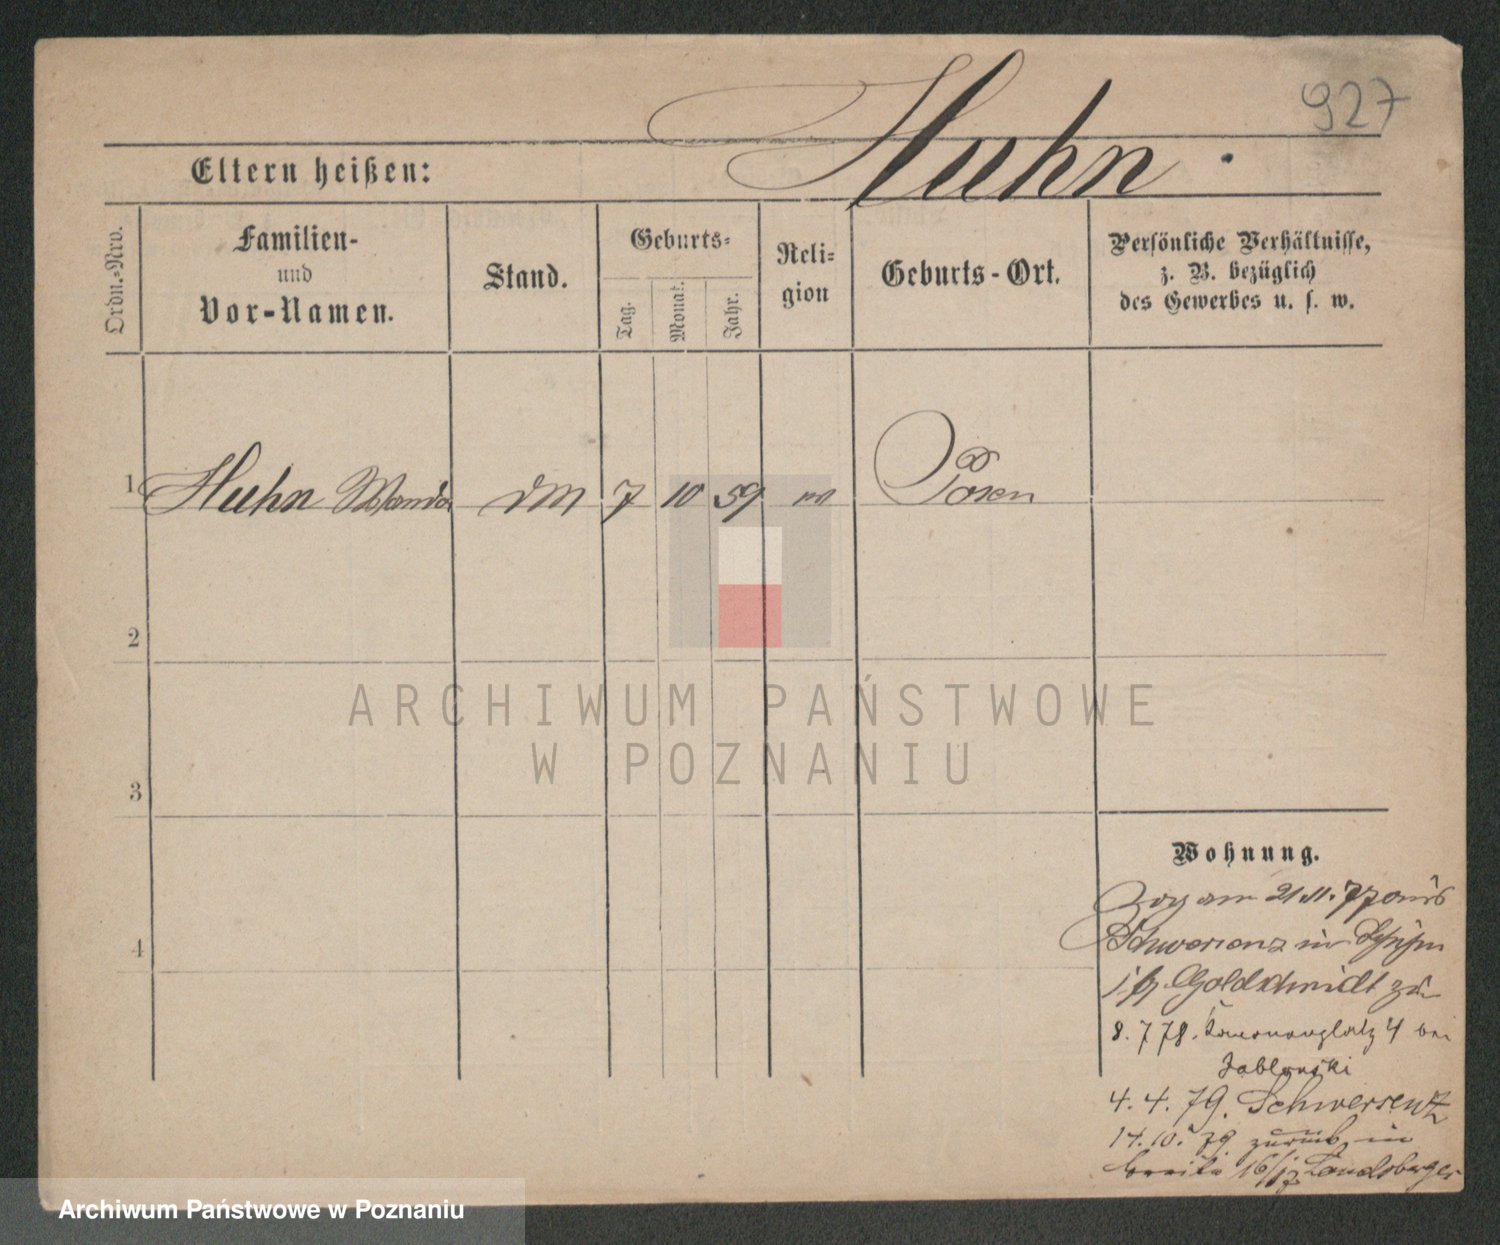 927
Huhn.
Eltern heißen:
Ordn.=Nro.
Familien-
und
Vor-Namen.
Stand.
Geburts=
Tag.
Monat.
Jahr.
Reli=
gion
Geburts-Ort.
Persönliche Verhältnisse,
z. B. bezüglich
des Gewerbes u. s. w.
1 Huhn Wanda DM 7 10 59 Posen
2
ARCHIWUM PAŃSTWOWE
W POZNANIU
3
Wohnung.
Zog am 21.11.77 aus
Schwersenz in
Goldschmidt zu
4
8. 7 78. 4 bei
Jablonski
4. 4. 79. Schwersenz
17. 10. 79 zurück in
breite 16/17 Landsberger
Archiwum Państwowe w Poznaniu